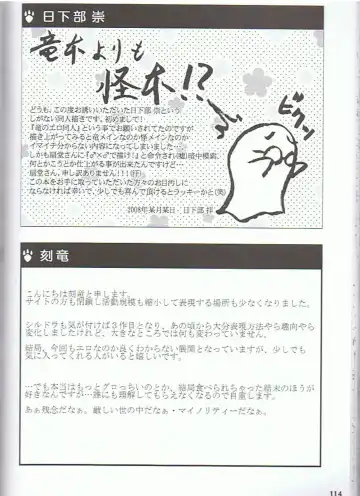 日下部 崇
竜本よりも
怪本!?
ビクンッ
どうも、この度お誘いいただいた日下部 崇という
しがない同人描きです。初めまして!
『竜のエロ同人』という事でお願いされてたのですが
描き上がってみると竜メインなのか怪メインなのか
イマイチ分からない内容になってしまいました…
しかも扇堂さんに『♂×♂で描け!』と命令され(嘘)暗中模索、
何とかこうとか仕上がる事が出来たんですけど…
扇堂さん、申し訳ありません!!!(汗)
この本をお手に取っていただいた方々のお目汚しに
ならなければ幸いで、少しでも喜んで頂けるとラッキーかと(笑)
2008年某月某日 日下部 拝
刻竜
こんにちは刻竜と申します。
サイトの方も閉鎖し活動規模も縮小して表現する場所も少なくなりました。
シルドラも気が付けば3作目となり、あの頃から大分表現方法やら趣向やら
変化しましたけれど、大きなところでは何も変わっていません。
結局、今回もエロなのか良くわからない展開となっていますが、少しでも
気に入ってくれる人がいると嬉しいです。
…でも本当はもっとグロっちいのとか、結局食べられちゃった結末のほうが
好きなんですが…誰にも理解してもらえなくなるので自重します。
あぁ残念だなぁ、厳しい世の中だなぁ・マイノリティーだなぁ。
114